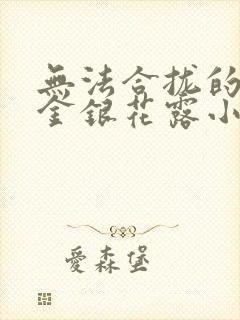 無法合拢的
金銀花露小
愛森堡